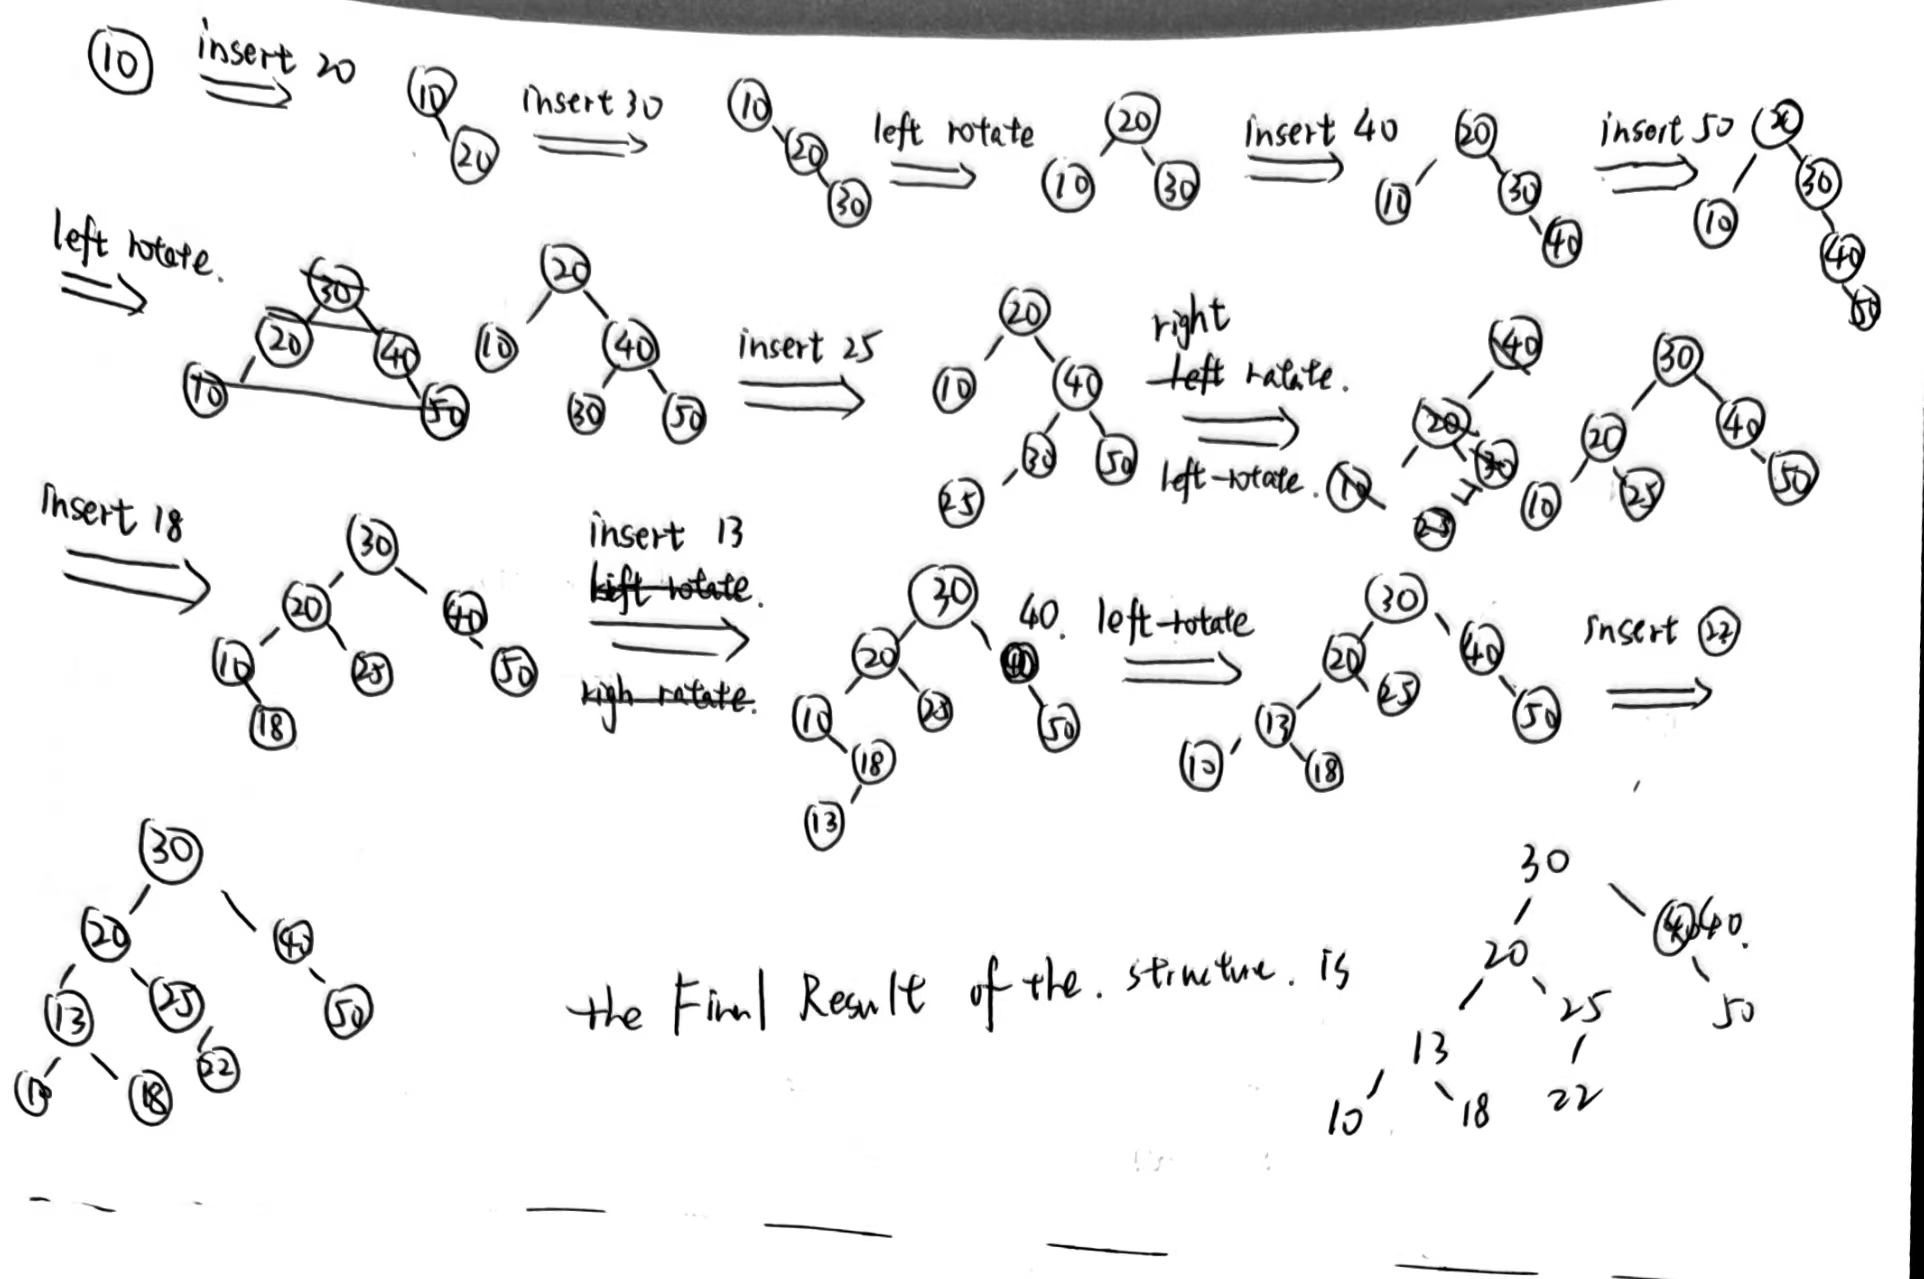 10 insert 20 10 20 insert 30 10 20 30 left rotate 20 10 30 insert 40 20 10 30 40 insert 50 20 10 30 40 50
left rotate. 30 20 40 10 50 20 10 40 30 50 insert 25 20 10 40 30 50 25 right left ratate. left-rotate. 40 20 30 10 25 30 20 40 10 25 50
insert 18 30 20 40 10 25 50 18 insert 13 left rotate. righ ratate. 30 20 40. 40 10 25 50 18 13 left-rotate 30 20 40 13 25 50 10 18 insert 22
30
20 40
13 25 50
10 18 22
the Final Result of the. structure. is
30
20 40 40.
13 25 50
10 18 22